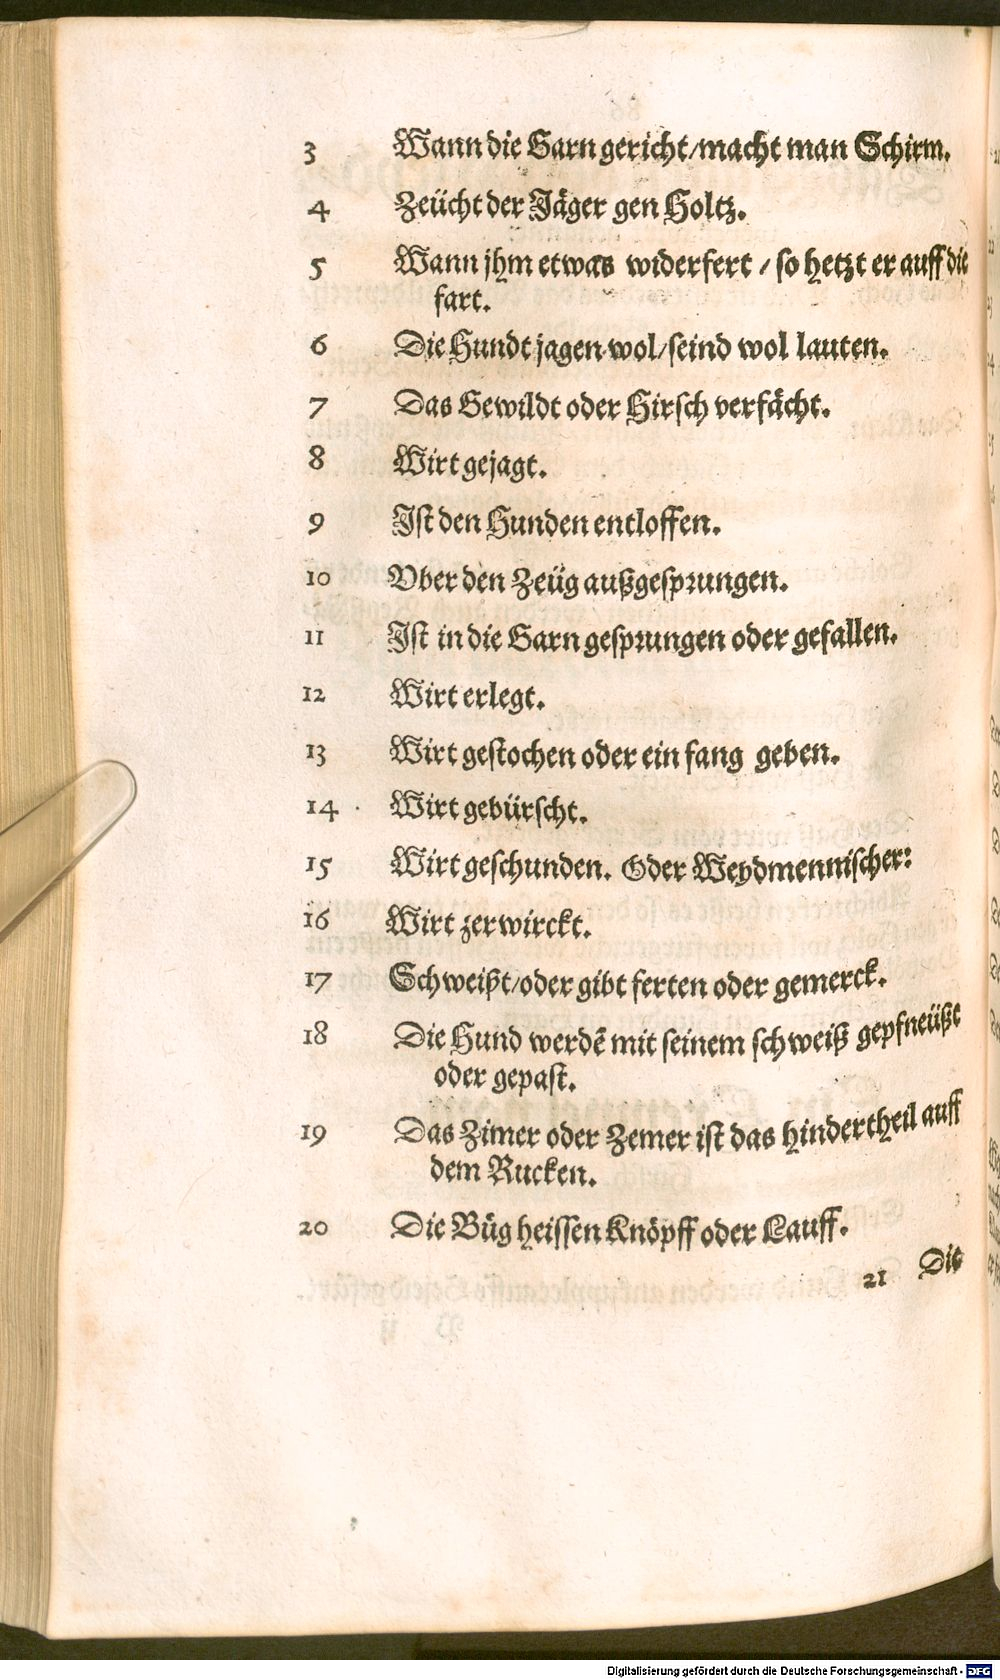 3 Wann die Garn gericht/macht man Schirm.
4 Zeücht der Jäger gen Holtz.
5 Wann jhm etwas widerfert / so hetzt er auff die
fart.
6 Die Hundt jagen wol/seind wol lauten.
7 Das Gewildt oder Hirsch verfächt.
8 Wirt gejagt.
9 Ist den Hunden entloffen.
10 Vber den Zeüg außgesprungen.
11 Ist in die Garn gesprungen oder gefallen.
12 Wirt erlegt.
13 Wirt gestochen oder ein fang geben.
14 Wirt gebürscht.
15 Wirt geschunden. Oder Weydmennischer:
16 Wirt zerwirckt.
17 Schweißt/oder gibt ferten oder gemerck.
18 Die Hund werdẽ mit seinem schweiß gepfneüßt
oder gepast.
19 Das Zimer oder Zemer ist das hindertheil auff
dem Rucken.
20 Die Büg heissen Knöpff oder Lauff.
21 Die
Digitalisierung gefördert durch die Deutsche Forschungsgemeinschaft - DFG